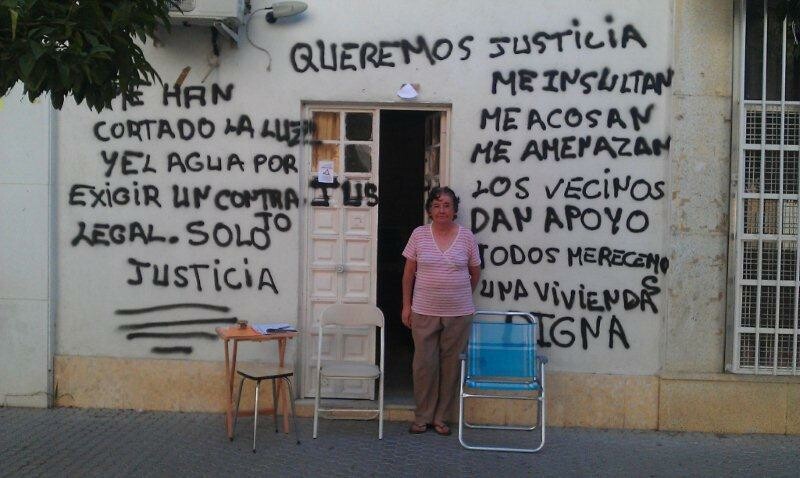 QUEREMOS JUSTICIA
ME HAN
CORTADO LA LUZ
Y EL AGUA POR
EXIGIR UN CONTRA
TO
LEGAL. SOLO
JUSTICIA
JUS
ME INSULTAN
ME ACOSAN
ME AMENAZAN
LOS VECINOS
DAN APOYO
TODOS MERECEMO
S
UNA VIVIENDA
DIGNA